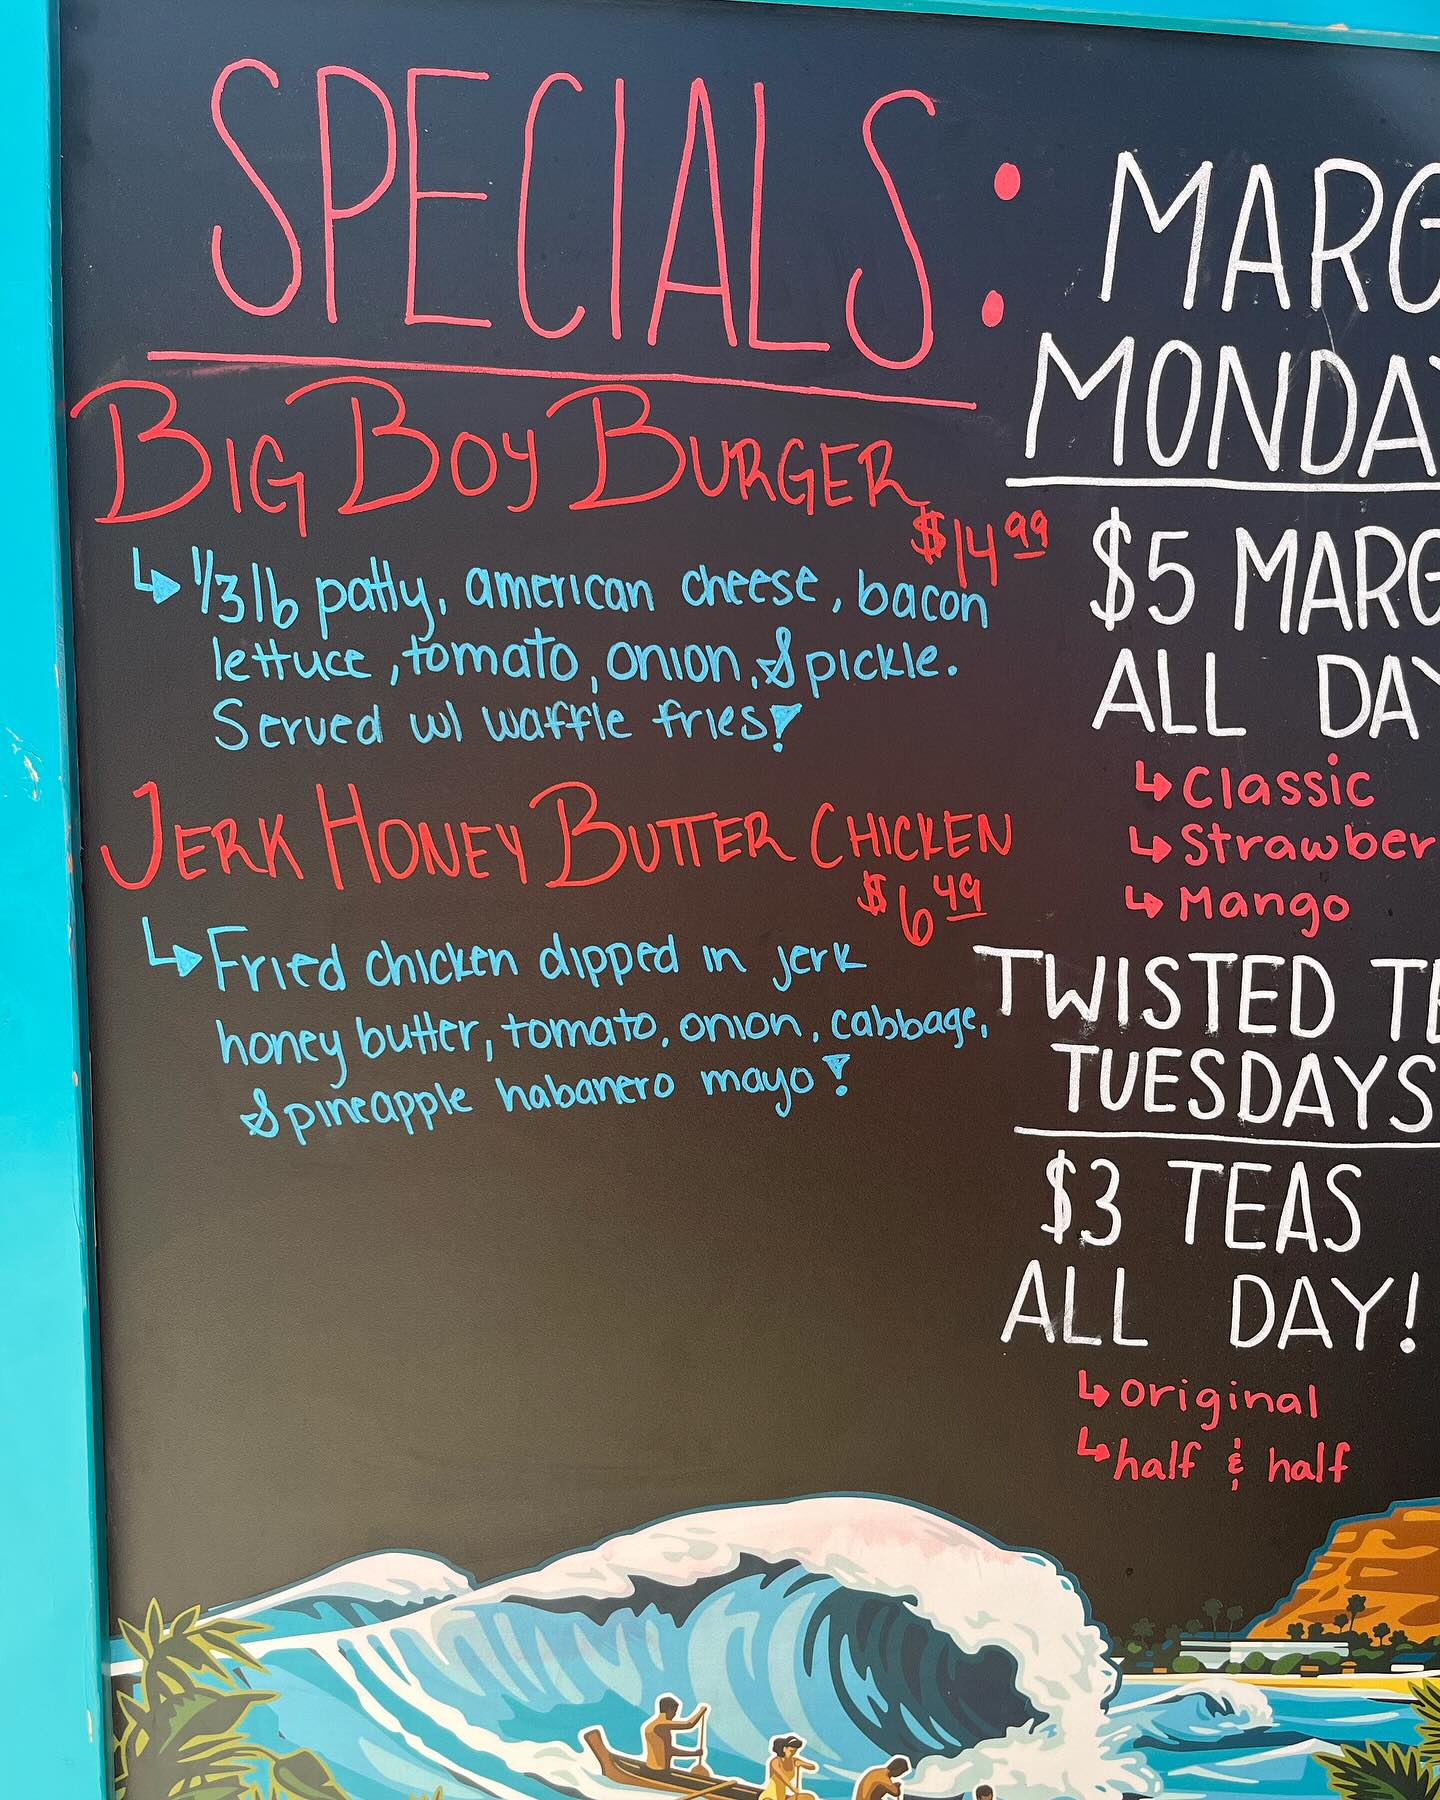 SPECIALS:
BIG BOY BURGER
$14.99
↳ 1/3 lb patty, american cheese, bacon
lettuce, tomato, onion, & pickle.
Served w/ waffle fries!
JERK HONEY BUTTER CHICKEN
$6.49
↳ Fried chicken dipped in jerk
honey butter, tomato, onion, cabbage,
& pineapple habanero mayo!
MARG
MONDAY
$5 MARG
ALL DAY
↳ Classic
↳ Strawber
↳ Mango
TWISTED TE
TUESDAYS
$3 TEAS
ALL DAY!
↳ original
↳ half & half